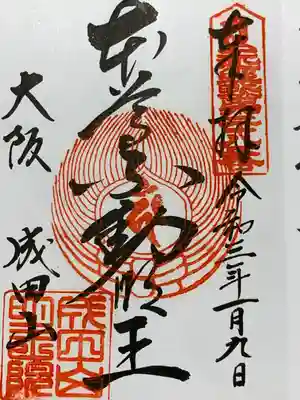 奉拝
令和三年一月九日
本尊不動明王
大阪 成田山